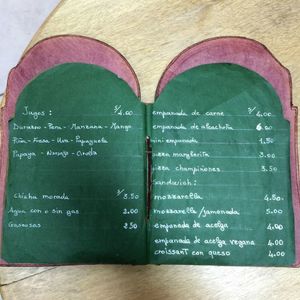 Jugos : S/ 4.00
Durazno - Pera - Manzana - Mango
Piña - Fresa - Uva - Papayuela
Papaya - Naranja -
Chicha morada S/ 3.50
Agua con o sin gas 2.00
Gaseosas 2.50
empanada de carne S/ 4.00
empanada de alcachofa 6.00
mini empanada 1.50
pizza margherita 3.00
pizza champiñones 3.50
Sandwich :
mozzarella 4.50
mozzarella / jamonada 5.00
empanada de acelga 4.00
empanada de acelga vegana 4.00
croissant con queso 4.00